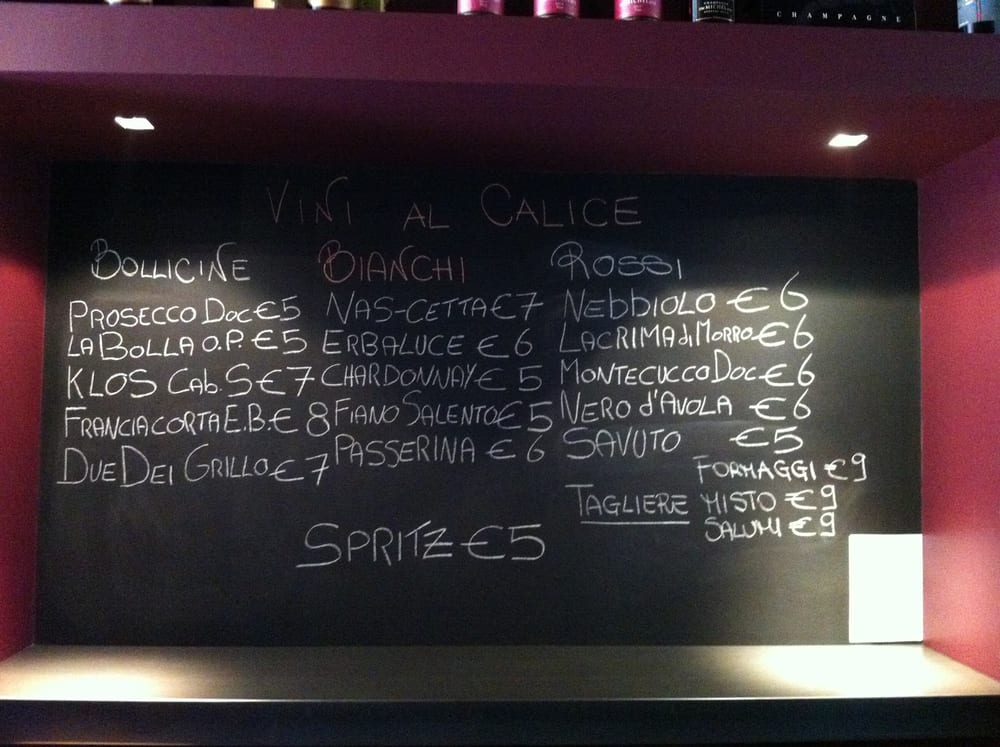 CHAMPAGNE
VINI AL CALICE
BOLLICINE
PROSECCO DOC €5
LA BOLLA O.P. €5
KLOS CAB. S €7
FRANCIACORTA E.B. € 8
DUE DEI GRILLO € 7
BIANCHI
NAS-CETTA €7
ERBALUCE € 6
CHARDONNAY € 5
FIANO SALENTO € 5
PASSERINA € 6
ROSSI
NEBBIOLO € 6
LACRIMA di MORRO € 6
MONTECUCCO DOC € 6
NERO d'AVOLA € 6
SAVUTO €5
FORMAGGI € 9
TAGLIERE MISTO € 9
SALUMI € 9
SPRITZ €5